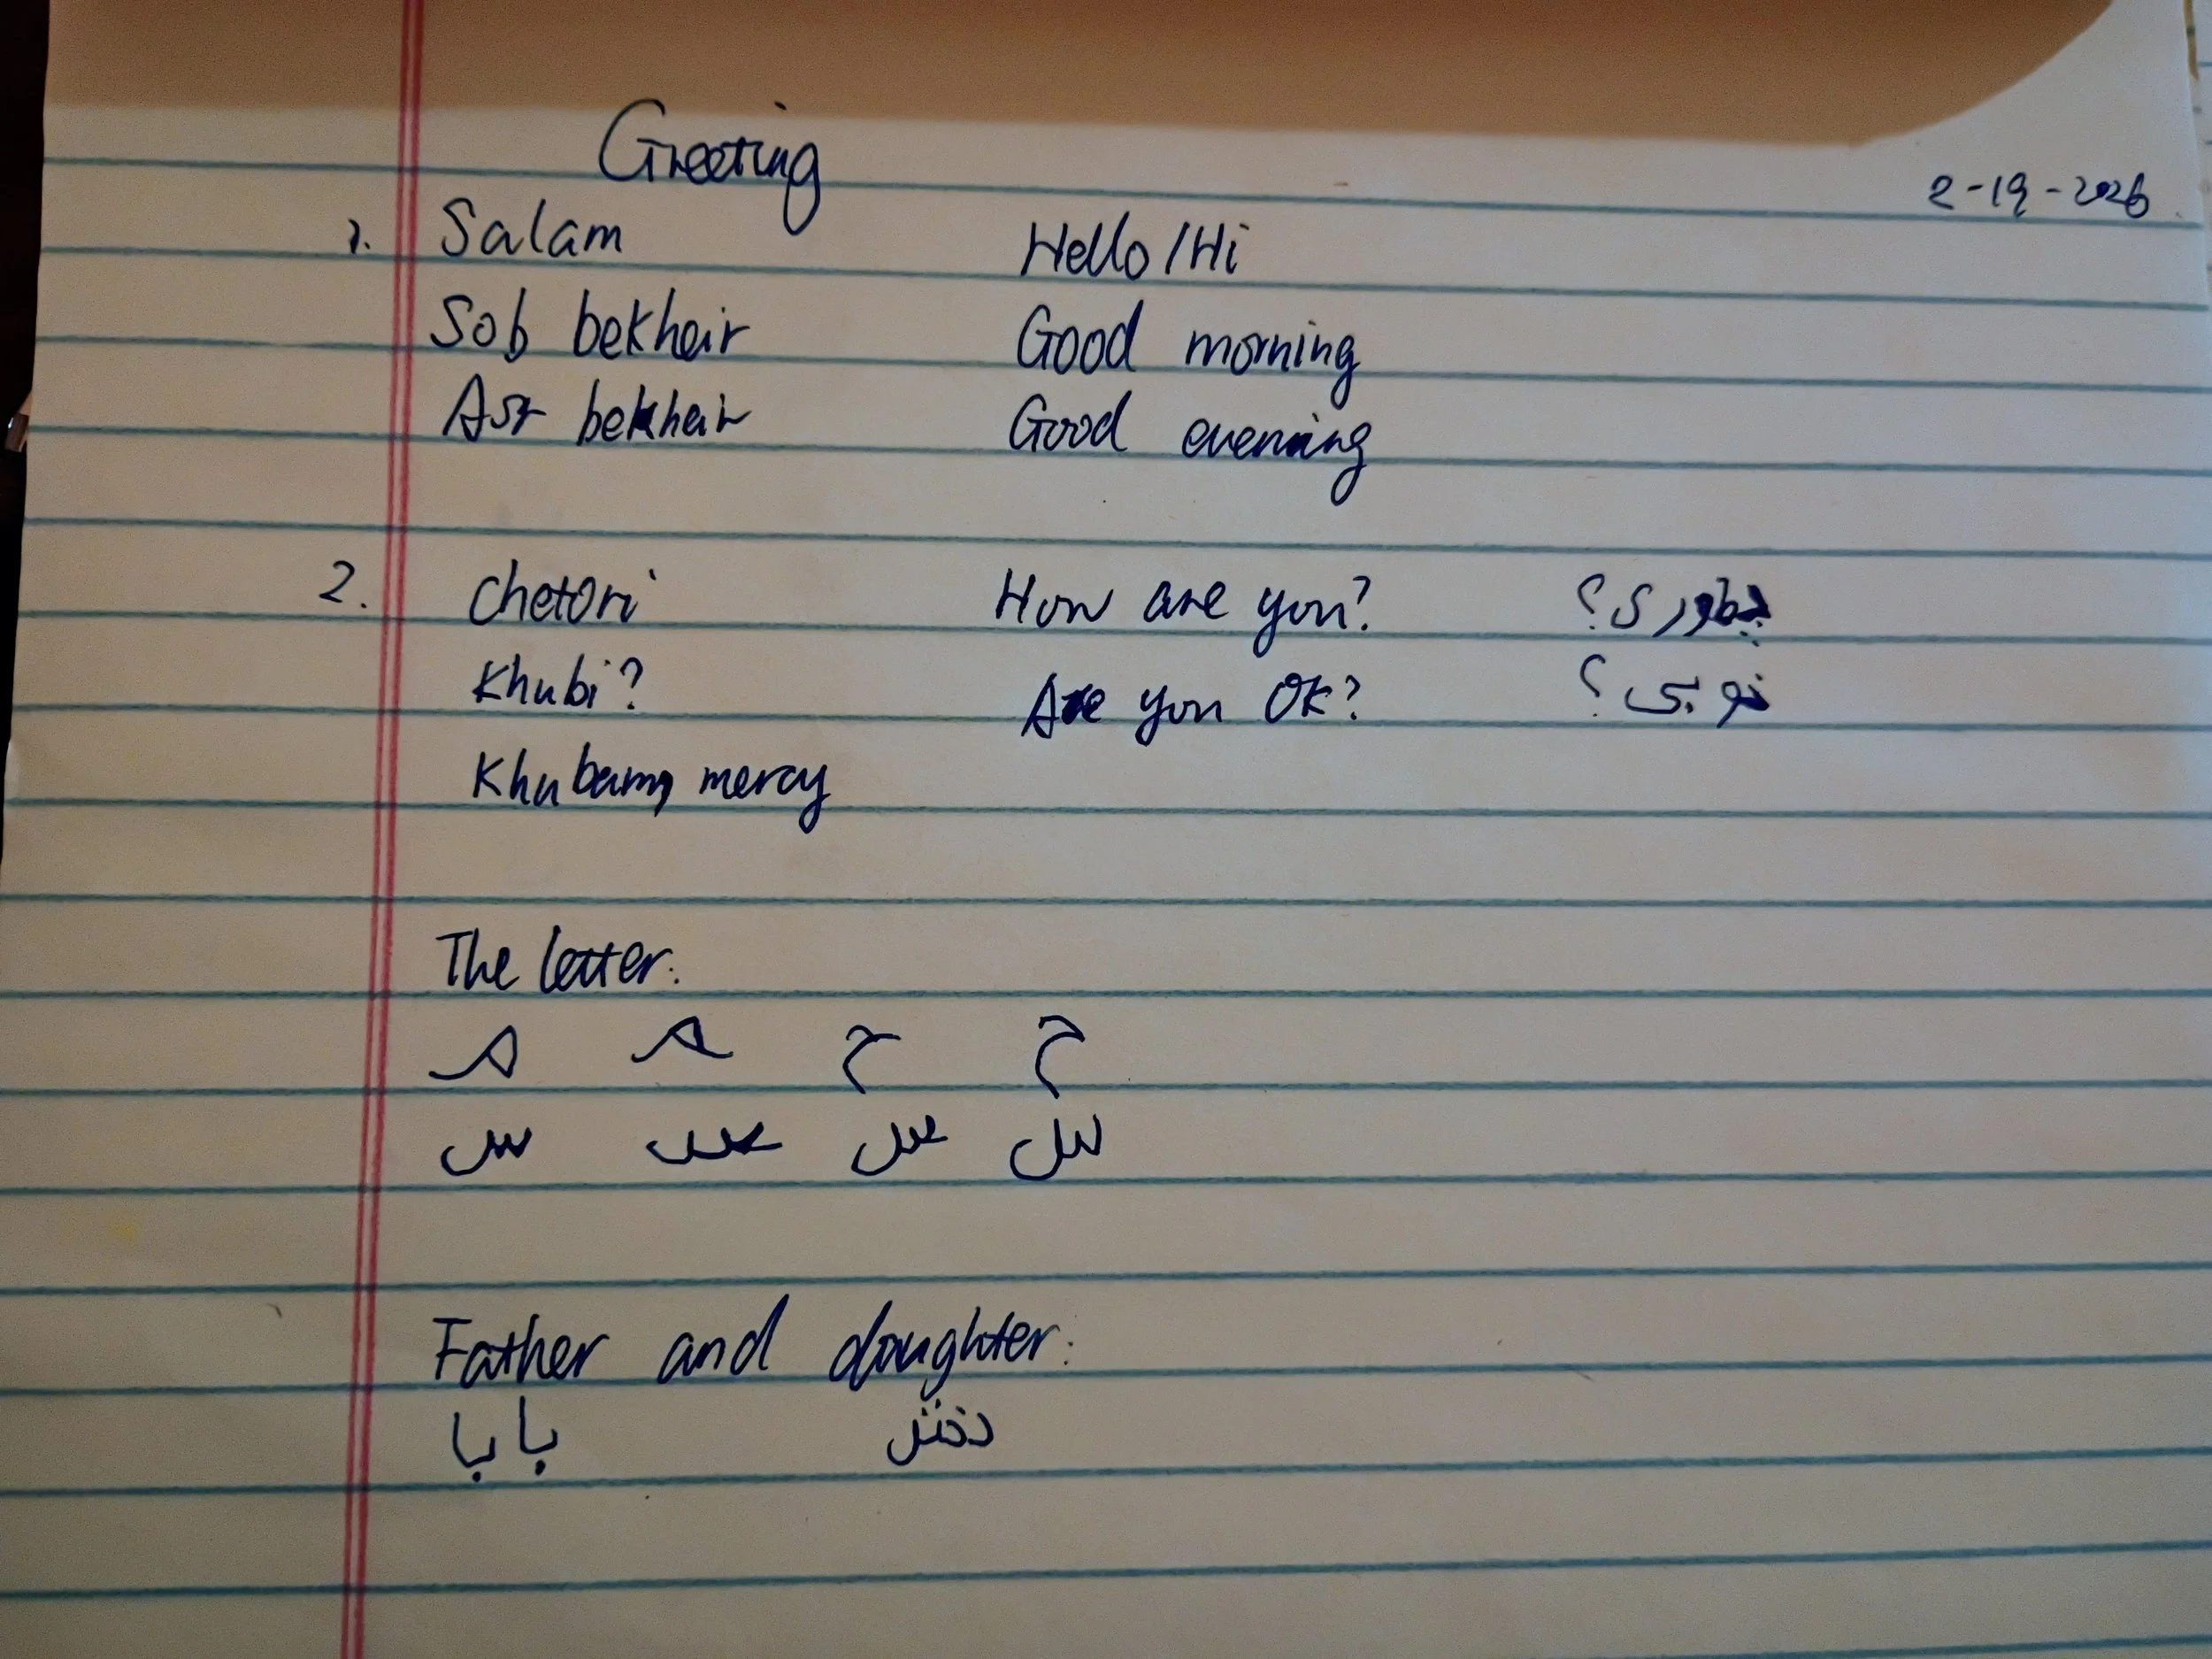 Greeting
2-19-2026
1. Salam Hello/Hi
Sob bekheir Good morning
Asr bekheir Good evening
2. Chetori How are you? چطوری؟
Khubi? Are you OK? خوبی؟
Khubam, mercy
The letter:
ح ح
س س س
Father and daughter:
بابا دختر